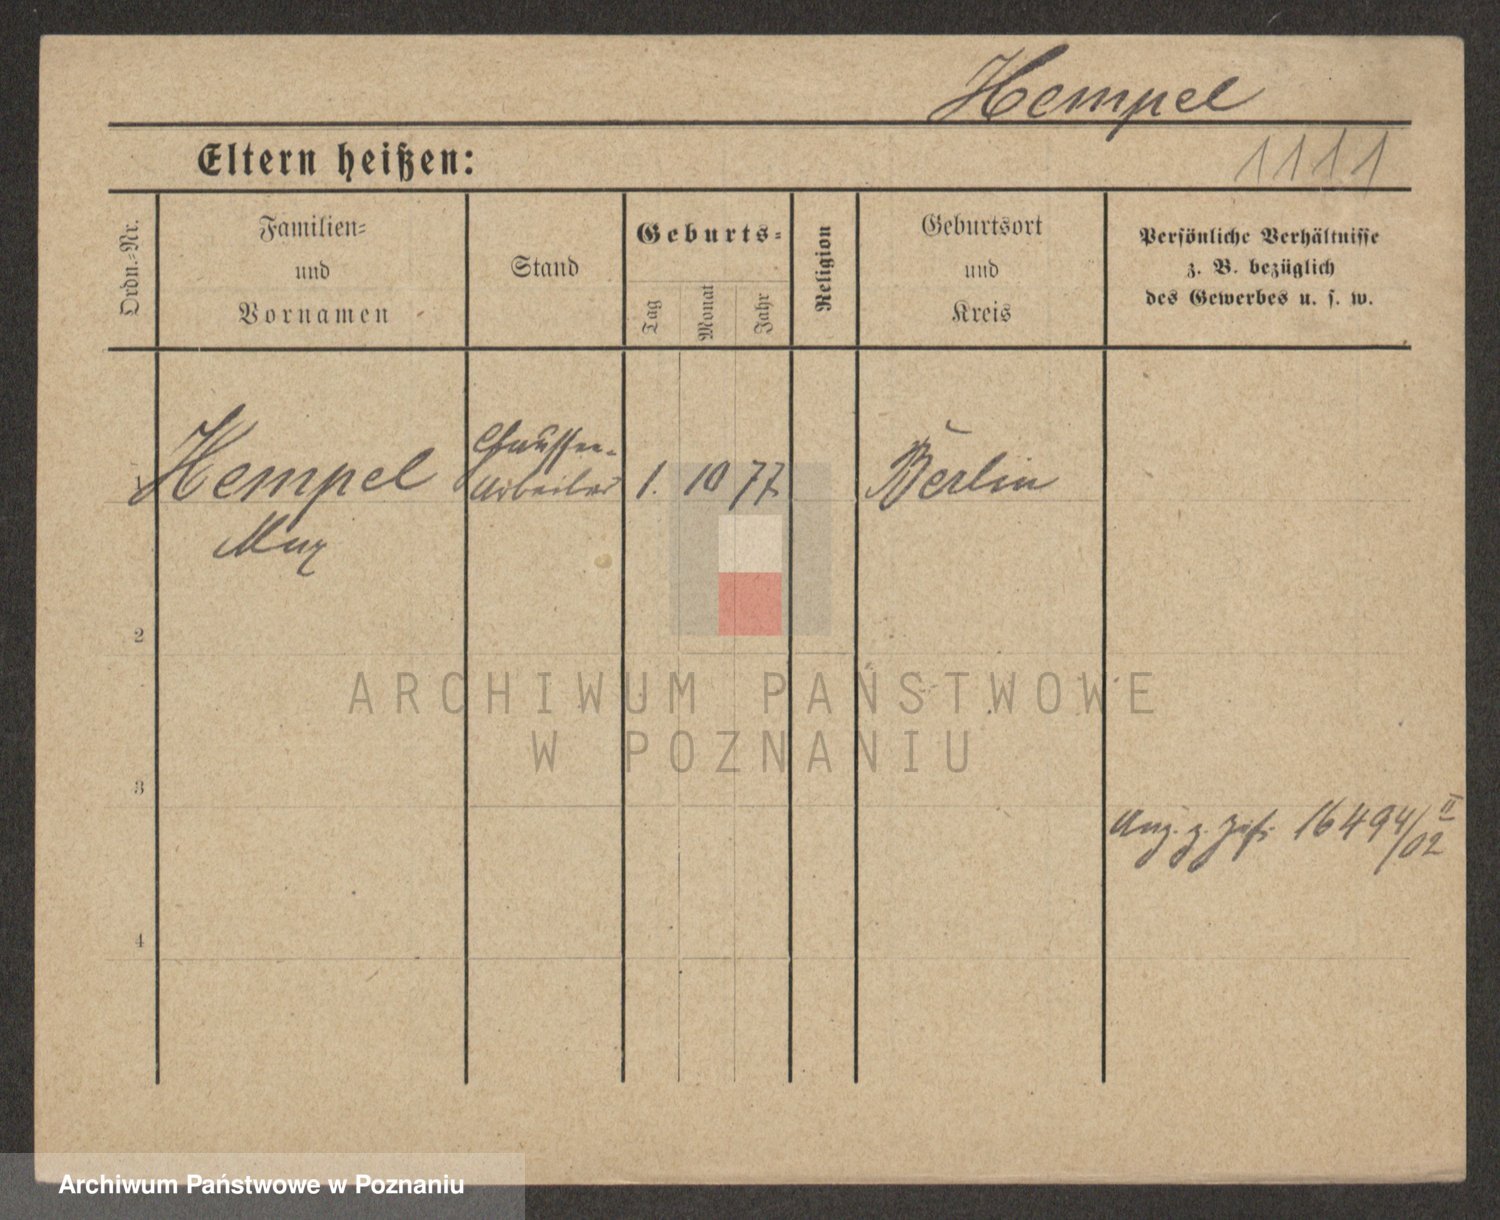 Hempel
Eltern heißen:
1111
Ordn.-Nr.
Familien-
und
Vornamen
Stand
Geburts-
Tag
Monat
Jahr
Religion
Geburtsort
und
Kreis
Persönliche Verhältnisse
z. B. bezüglich
des Gewerbes u. s. w.
1
Hempel
Max
Chaussee-
Arbeiter
1.
10
77
Berlin
2
ARCHIWUM PAŃSTWOWE
W POZNANIU
3
z. 16494/II
02
4
Archiwum Państwowe w Poznaniu